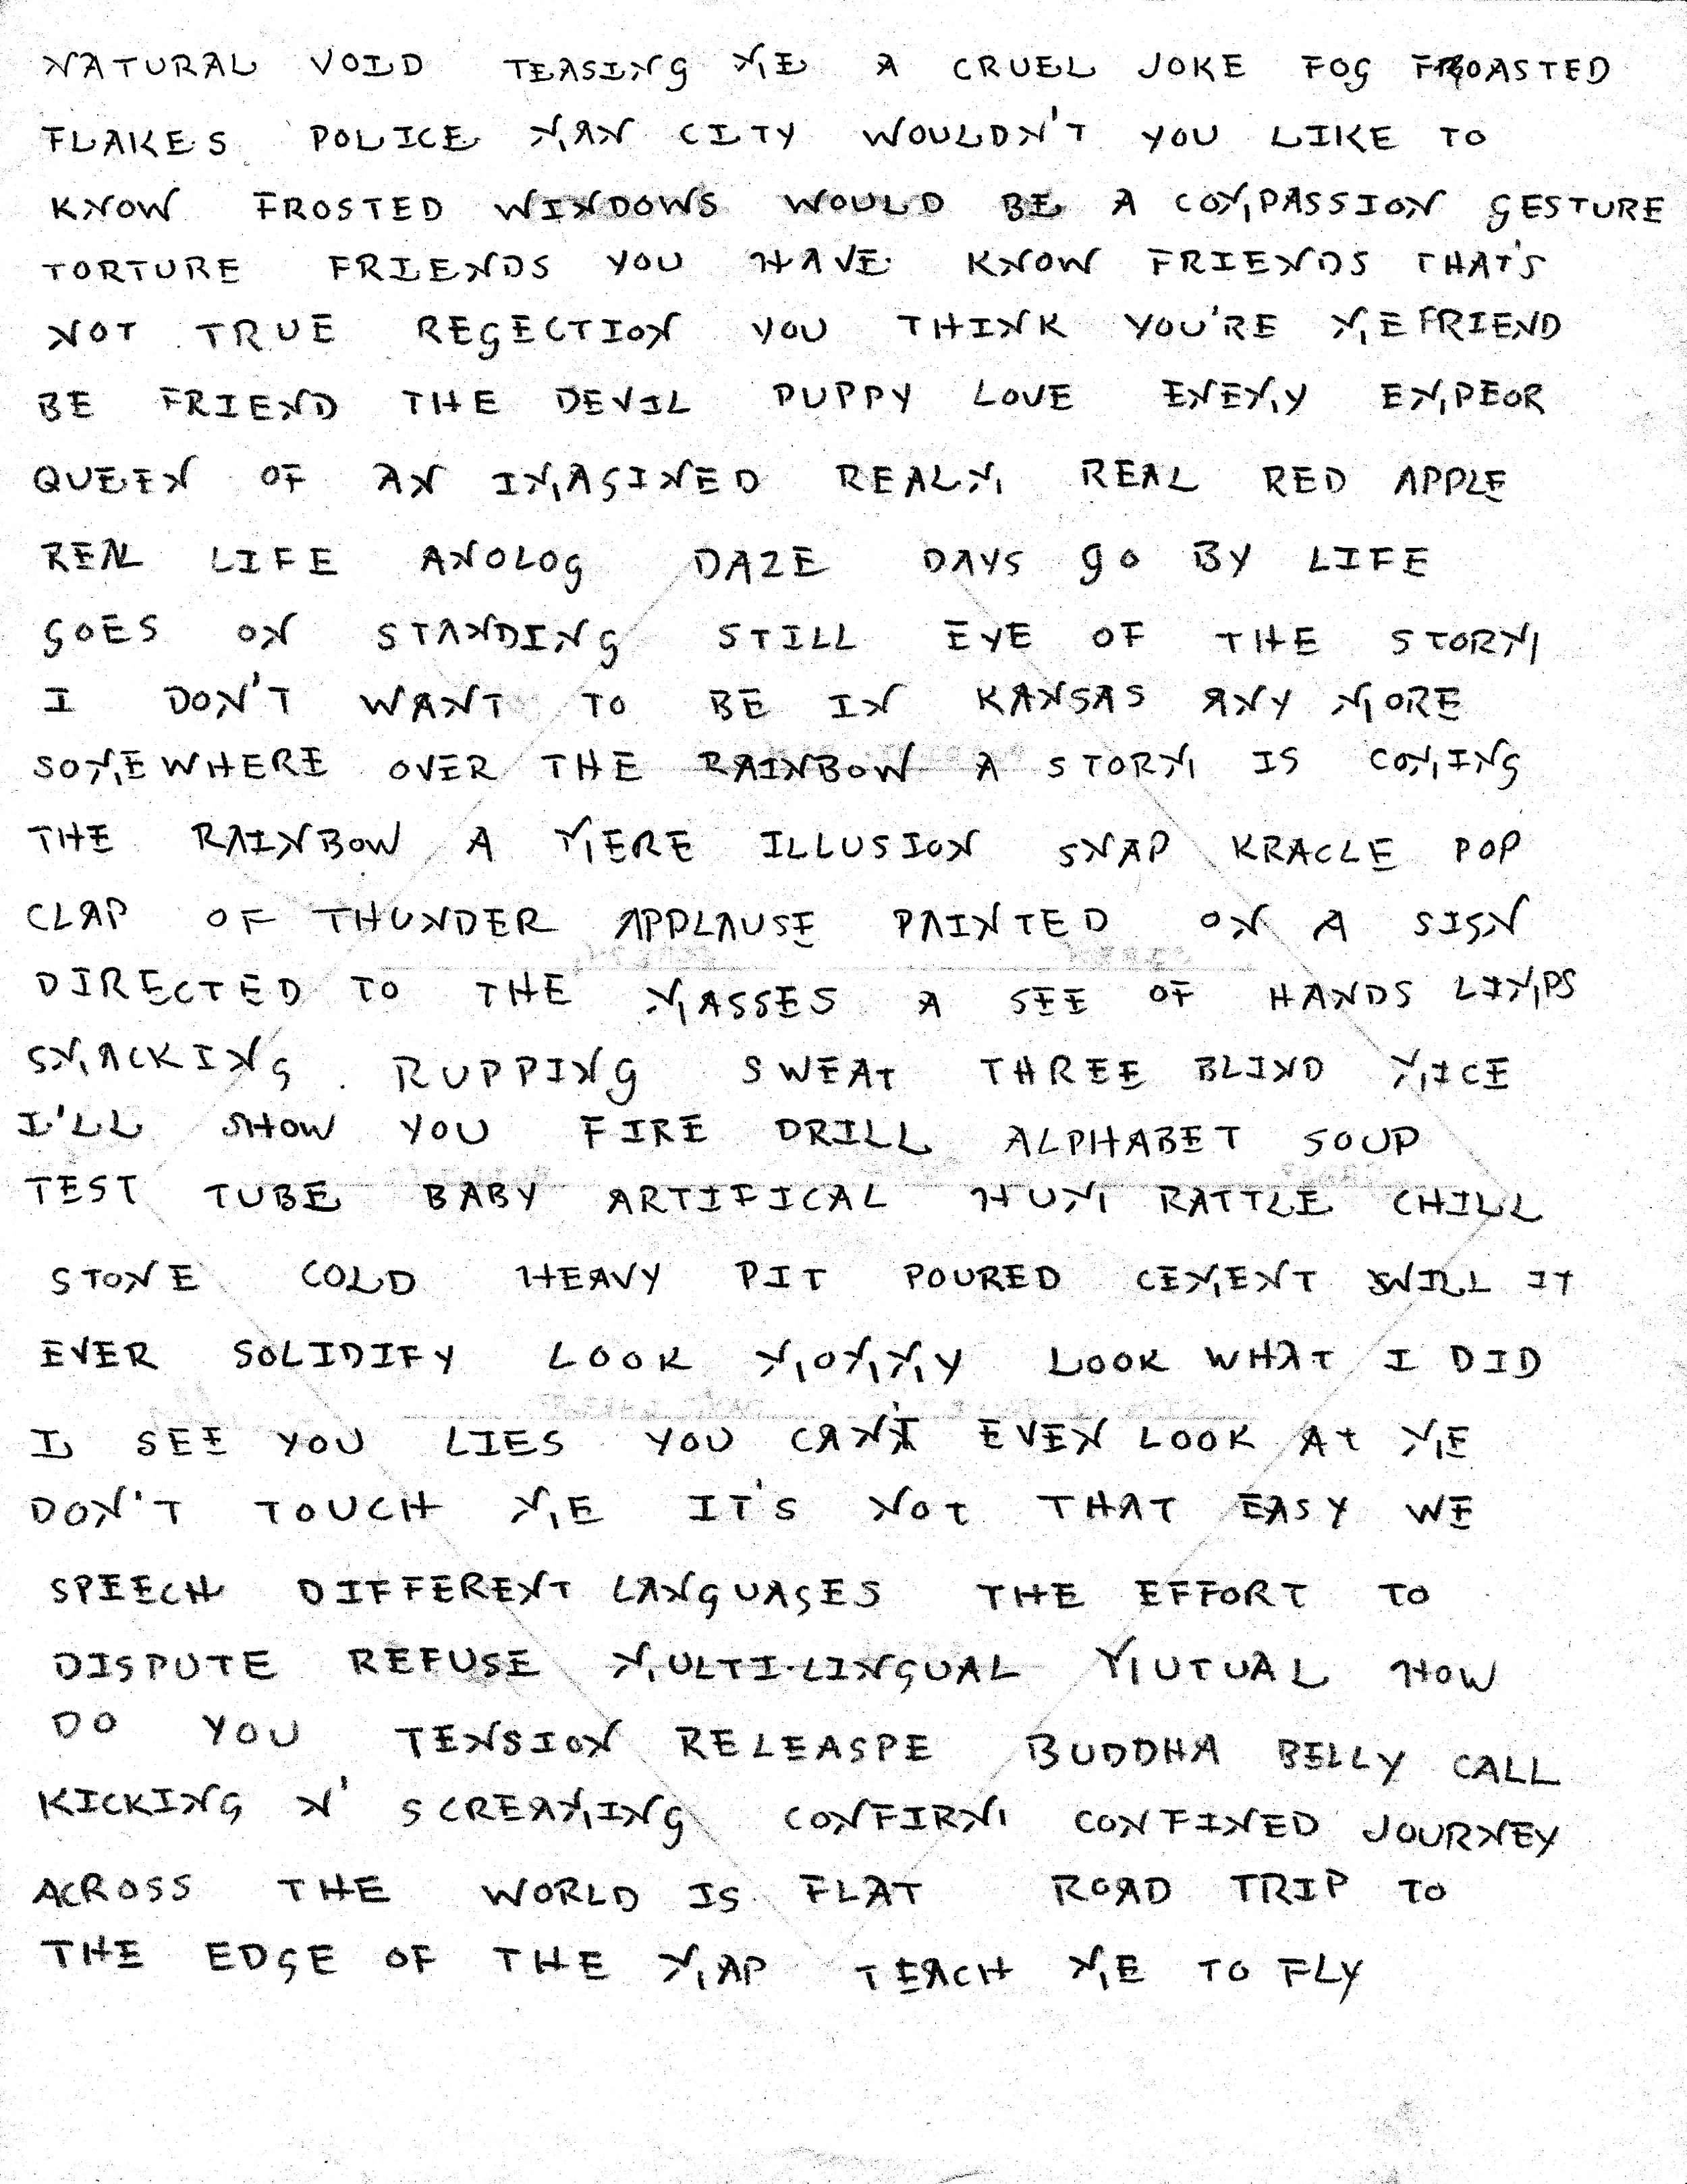 NATURAL VOID TEASING ME A CRUEL JOKE FOG FROASTED
FLAKES POLICE MAN CITY WOULDN'T YOU LIKE TO
KNOW FROSTED WINDOWS WOULD BE A COMPASSION GESTURE
TORTURE FRIENDS YOU HAVE KNOW FRIENDS THAT'S
NOT TRUE REGECTION YOU THINK YOU'RE ME FRIEND
BE FRIEND THE DEVIL PUPPY LOVE ENEMY EMPEOR
QUEEN OF AN IMAGINED REALM REAL RED APPLE
REAL LIFE ANOLOG DAZE DAYS GO BY LIFE
GOES ON STANDING STILL EYE OF THE STORM
I DON'T WANT TO BE IN KANSAS ANY MORE
SOMEWHERE OVER THE RAINBOW A STORM IS COMING
THE RAINBOW A MERE ILLUSION SNAP KRACLE POP
CLAP OF THUNDER APPLAUSE PAINTED ON A SIGN
DIRECTED TO THE MASSES A SEE OF HANDS LIMPS
SMACKING RUPPING SWEAT THREE BLIND MICE
I'LL SHOW YOU FIRE DRILL ALPHABET SOUP
TEST TUBE BABY ARTIFICAL HUM RATTLE CHILL
STONE COLD HEAVY PIT POURED CEMENT WILL IT
EVER SOLIDIFY LOOK MOMMY LOOK WHAT I DID
I SEE YOU LIES YOU CAN'T EVEN LOOK AT ME
DON'T TOUCH ME IT'S NOT THAT EASY WE
SPEECH DIFFERENT LANGUAGES THE EFFORT TO
DISPUTE REFUSE MULTI-LINGUAL MUTUAL HOW
DO YOU TENSION RELEASPE BUDDHA BELLY CALL
KICKING N' SCREAMING CONFIRM CONFINED JOURNEY
ACROSS THE WORLD IS FLAT ROAD TRIP TO
THE EDGE OF THE MAP TEACH ME TO FLY